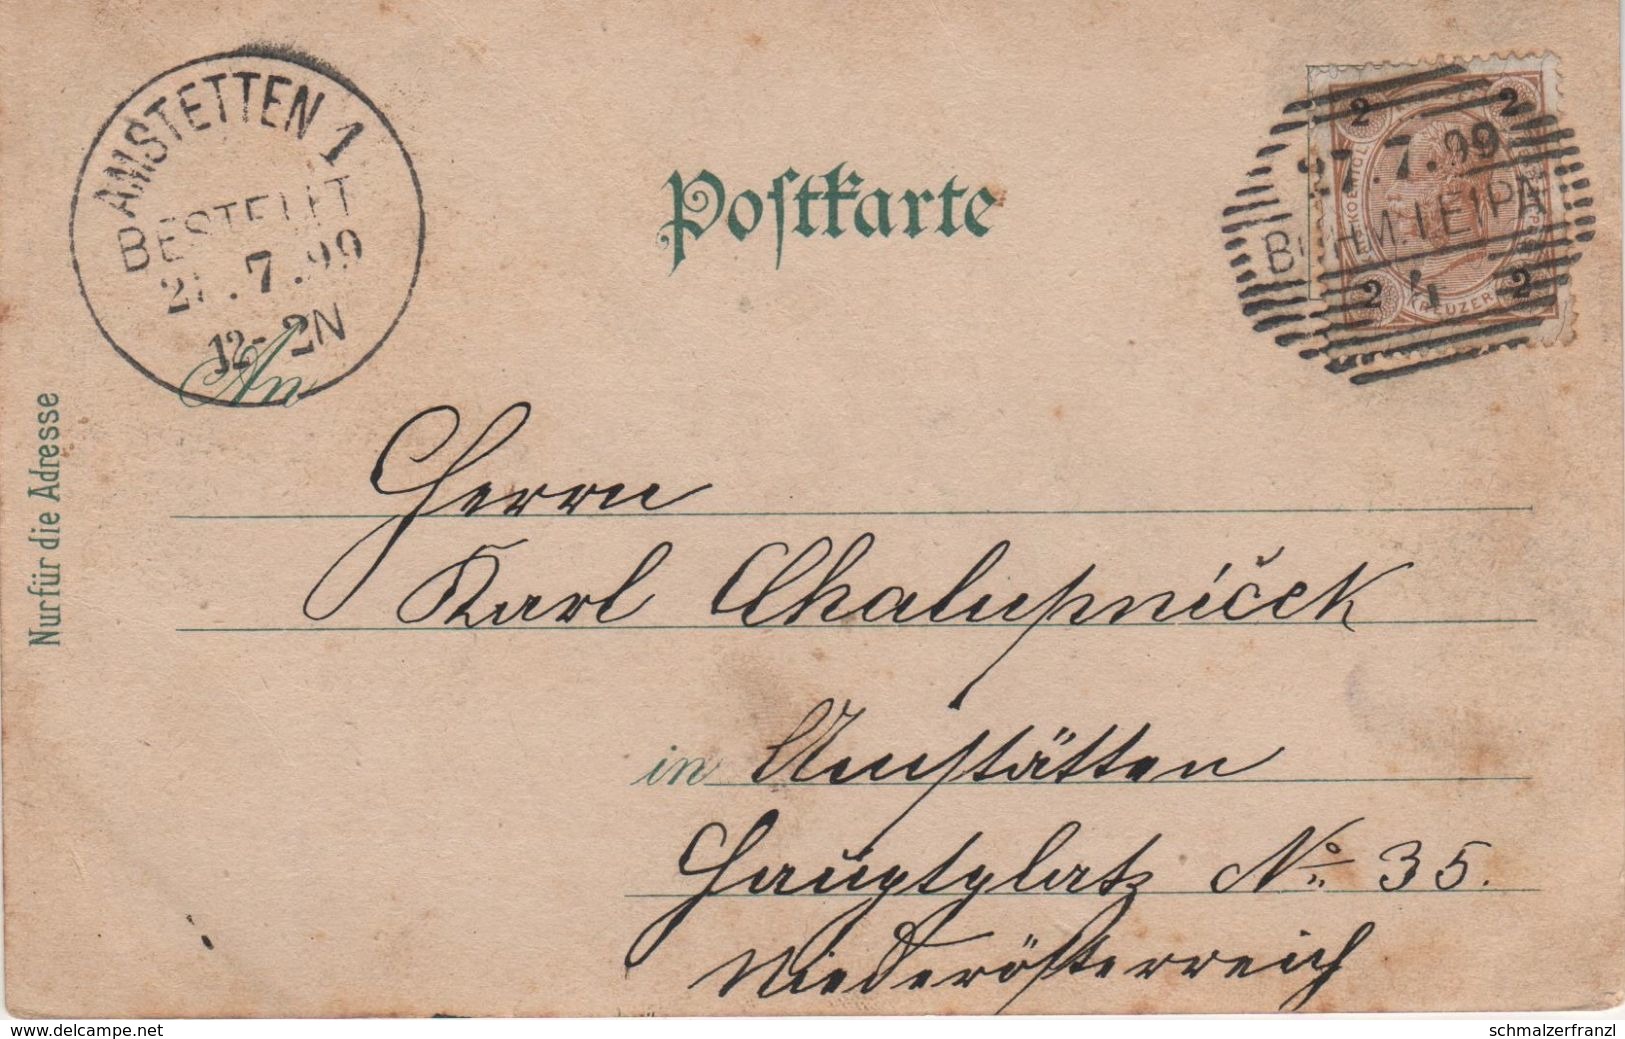 AMSTETTEN 1
BESTELLT
7.99
12-2N
Postkarte
2 2
7.99
BÖHM. LEIPA
2 4 2
KREUZER
An
Herrn
Karl Chalupníček
in Amstätten
Hauptplatz No 35.
Niederösterreich
Nur für die Adresse
www.delcampe.net
schmalzerfranzl